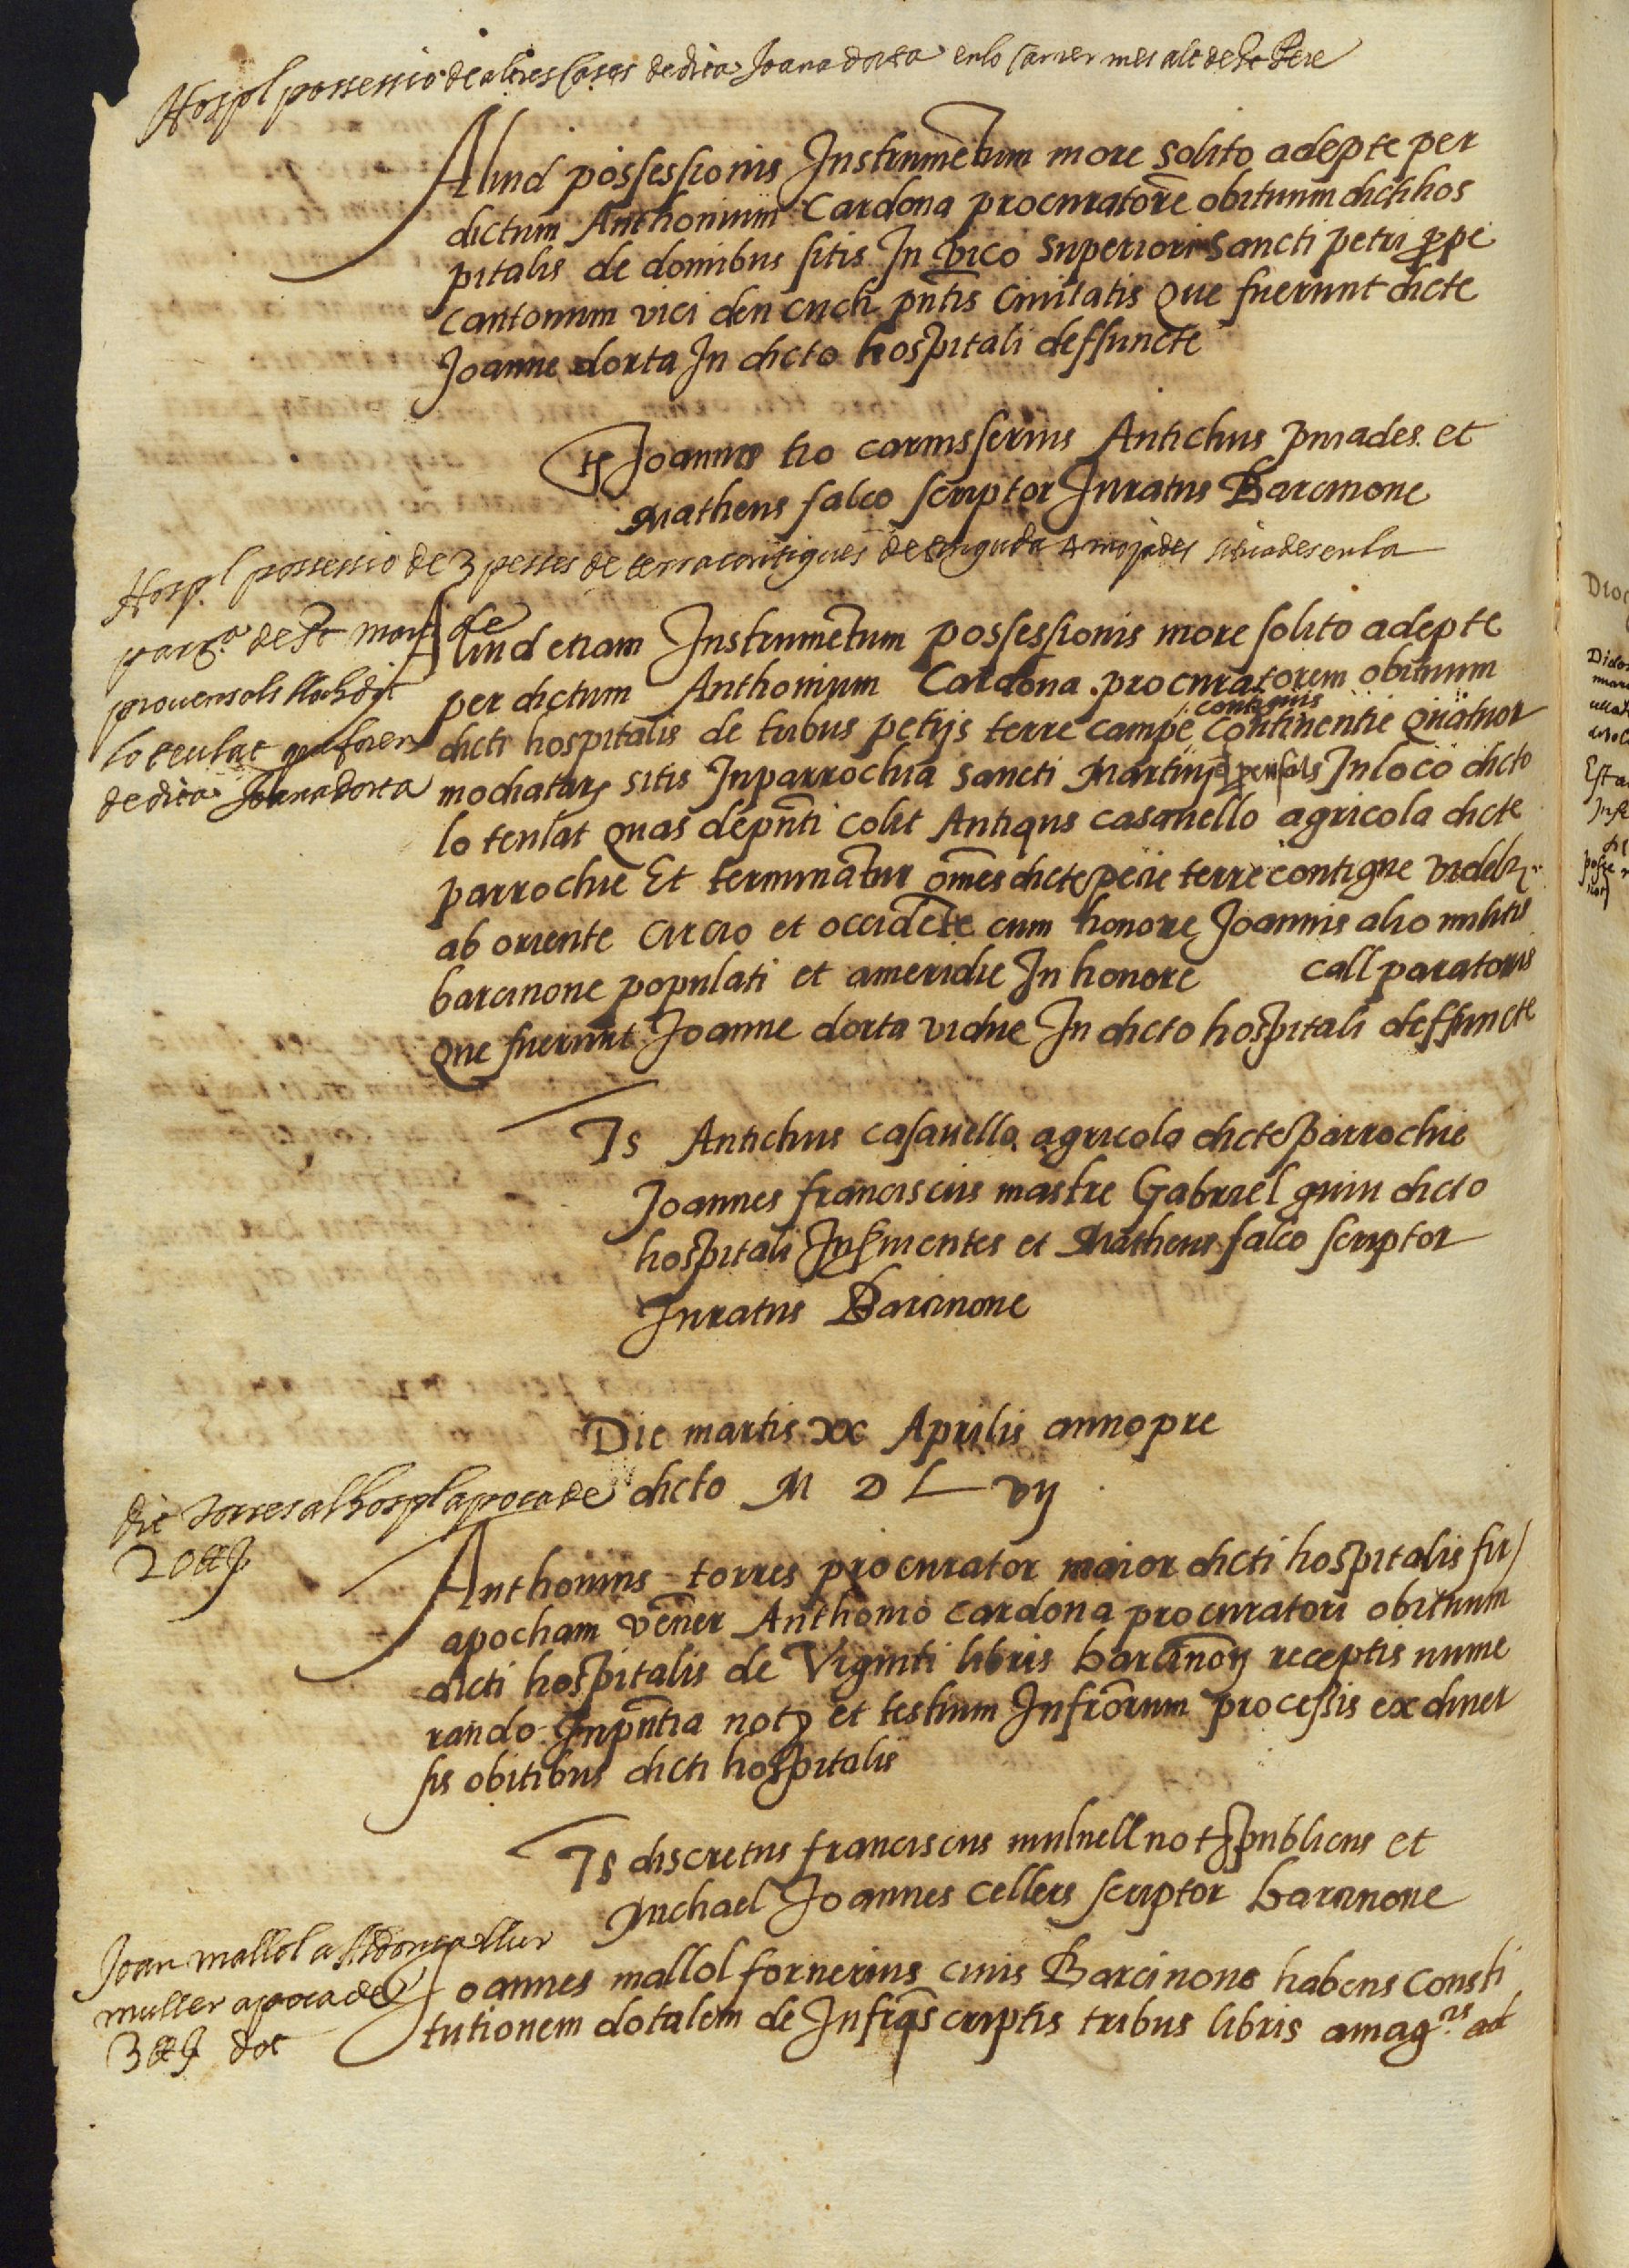 Hospl possessio de altres Cases de dita Joana dorta en lo carrer mes alt de St Pere
Aliud possessionis Instrumētum more solito adepte per
dictum Anthonium Cardona procuratorē obituum dicti hos
pitalis de domibus sitis In vico superiori sancti petri ꝓpe
cantonum vici den cuch pn̄tis Civitatis Que fuerunt dicte
Joanne dorta In dicto hospitali deffuncte
Ts Joannes tio carnisserius Antichus priuades et
Matheus falco scriptor Juratus Barcinone
Hospl possessio de 3 pesses de terra contigues de tinguda 4 mojades situades en la
parrª de St Marti de
prouensals lloch dit
lo teulat que foren
de dita Joana dorta
Aliud etiam Instrumētum possessionis more solito adepte
per dictum Anthonium Cardona procuratorem obituum
contiguis
dicti hospitalis de tribus petijs terre campe Continentie Quatuor
modiatarȝ sitis In parrochia sancti Martinj ꝓuensals In loco dicto
lo teulat Quas depn̄ti colit Antiqus casauello agricola dicte
parrochie Et terminātur om̄es dicte pecie terre contigue videlꝫ
ab oriente circio et occidēte cum honore Joannis alio militis
barcinone populati et a meridie In honore call paratoris
Que fuerunt Joanne dorta vidue In dicto hospitali deffuncte
Ts Antichus casauello agricola dicte parrochie
Joannes franciscus mastre Gabriel guiu dicto
hospitali Inseruientes et Matheus falco scriptor
Juratus Barcinone
Die martis xx Aprilis anno pre
dicto M D L vij
dit torres al hospl apoca de
20 ll
Anthonius torres procurator maior dicti hospitalis fir/
apocham vēner Anthonio cardona procuratori obituum
dicti hospitalis de Viginti libris barcinōn receptis nume
rando In pn̄tia notȝ et testium Infrōrum processis ex diuer
sis obitibus dicti hospitalis
Ts discretus franciscus mulnell notȝ publicus et
Michael Joannes cellers scriptor barcinone
Joan mallol
muller apoca de
3 ll dot
Joannes mallol fornerius ciuis Barcinone habens Consti
tutionem dotalem de Infrascriptis tribus libris a mag.cis ad